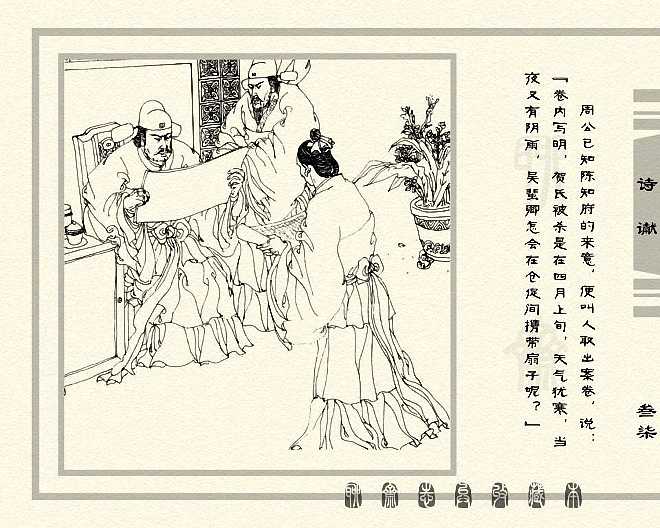 诗谳
叁柒
周公已知陈知府的来意，便叫人取出案卷，说：
「卷内写明，贺氏被杀是在四月上旬，天气犹寒，当
夜又有阴雨，吴蜚卿怎会在仓促间携带扇子呢？」
聊斋志异收藏本